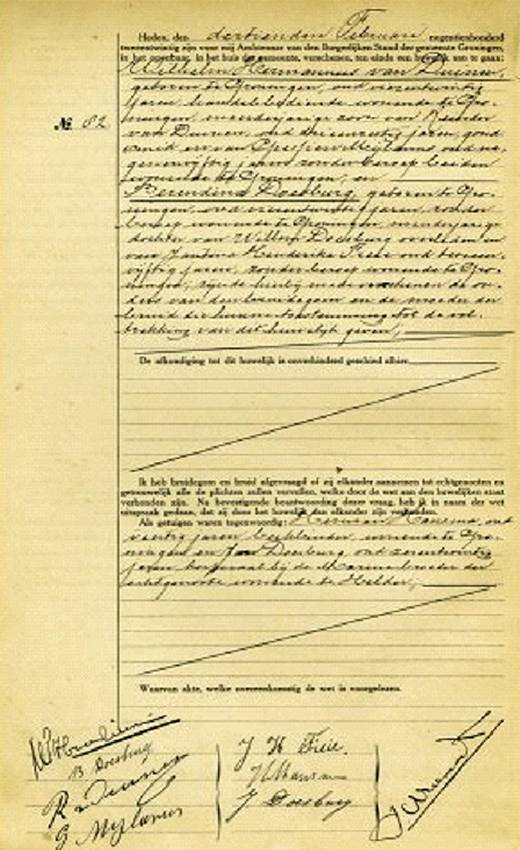 Heden, den dertienden Februari negentienhonderd
tweeentwintig zijn voor mij Ambtenaar van den Burgerlijken Stand der gemeente Groningen,
in het openbaar, in het huis der gemeente, verschenen, ten einde een huwelijk aan te gaan:
Wilhelm Hermannus van Duinen,
geboren te Groningen, oud vierentwintig
jaren, handelsbediende wonende te Gro-
№ 82
ningen, meerderjarige zoon van Reinder
van Duinen, oud drieenzestig jaren, goud
jaren zonder beroep beiden
wonende te Groningen, en
Berendina Doesburg, geboren te Gro-
ningen, oud jaren, zonder
beroep wonende te Groningen, minderjarige
dochter van Willem Doesburg overleden en
van Jantina Henderika Freie oud
vijftig jaren, zonder beroep wonende te Gro-
ningen; zijnde hierbij mede verschenen de ou-
ders van den bruidegom en de moeder der
bruid die hunne toestemming tot de vol-
trekking van dit huwelijk geven;
De afkondiging tot dit huwelijk is onverhinderd geschied alhier.
Ik heb bruidegom en bruid afgevraagd of zij elkander aannemen tot echtgenooten en
getrouwelijk alle de plichten zullen vervullen, welke door de wet aan den huwelijken staat
verbonden zijn. Na bevestigende beantwoording dezer vraag, heb ik in naam der wet
uitspraak gedaan, dat zij door het huwelijk aan elkander zijn verbonden.
Als getuigen waren tegenwoordig: Herman oud
veertig jaren wonende te Gro-
ningen en Jan Doesburg, oud zevenentwintig
jaren korporaal bij de Marine broeder der
echtgenoote, wonende te Helder,
Waarvan akte, welke overeenkomstig de wet is voorgelezen.
B Doesburg
R v Duinen
G. Mylanus
J H Freie.
J Doesburg